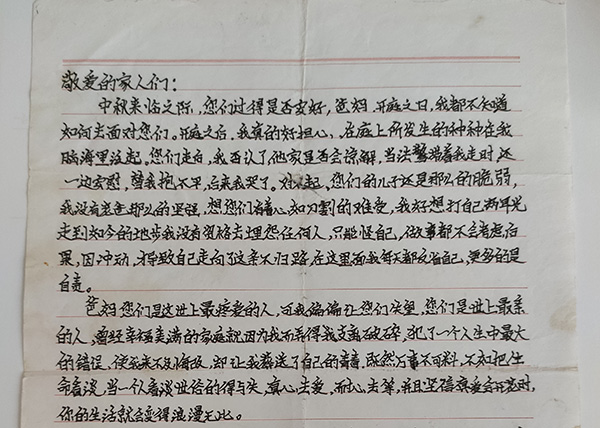 敬爱的家人们：
中秋来临之际，您们过得是否安好，爸妈.开庭之日，我都不知道
如何去面对您们。开庭之后，我真的好担心，在庭上所发生的种种在我
脑海里泛起。您们走后，我否认了他家是否会谅解，当法警带着我走时，还
一边安慰，替我抱不平，后来我哭了。对不起，您们的儿子还是那么的脆弱，
我没有爸爸那么的坚强，想您们看着心如刀割的难受，我好想打自己两耳光
走到如今的地步我没有资格去埋怨任何人，只能怪自己，做事都不会考虑后
果，因冲动，才导致自己走向了这条不归路，在这里面我每天都反省自己，更多的是
自责。
爸妈您们是这世上最疼爱的人，可我偏偏让您们失望，您们是世上最亲
的人，曾经幸福美满的家庭就因为我而弄得支离破碎，犯了一个人生中最大
的错误，使我来不及悔改，却让我葬送了自己的青春。既然万事不可料，不如把生
命看淡，当一个人看淡世俗的得与失，真心去爱，用心去等，并且坚信真爱会开花时，
你的生活就会变得浪漫无比。